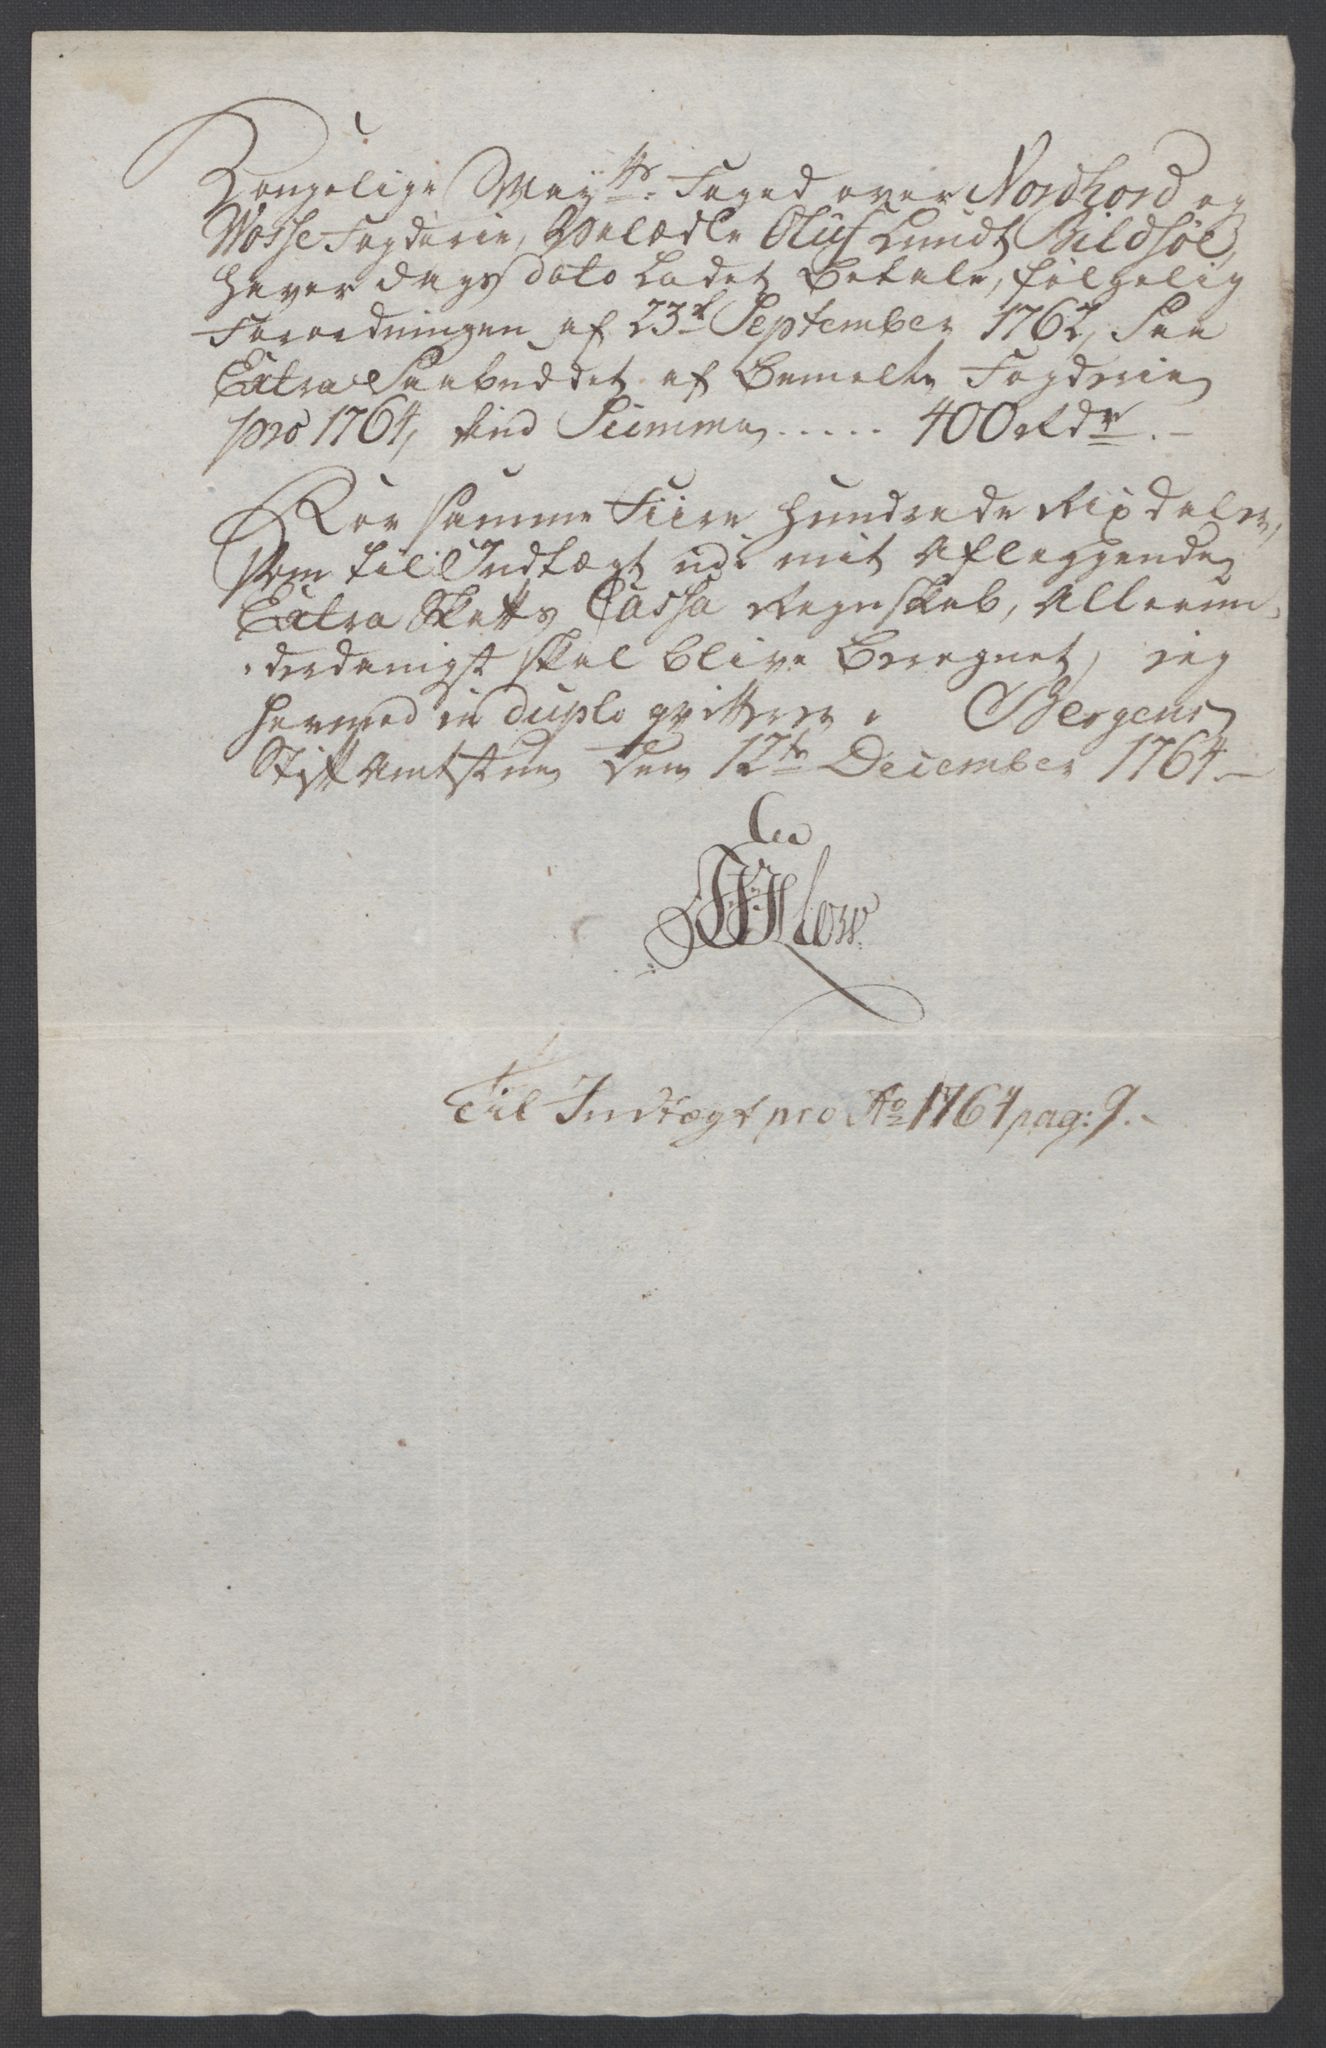 Kongelige May:tts Foged over Nordhord og
Wosse Fogderie, Velædle Oluf Lundt Bildsøe,
haver dags dato ladet betale, følgelig
Forordningen af 23de September 1762, paa
Extra Paabuddet af bemelte Fogderie
pro 1764, een Summa ..... 400 Rdr. -
For samme Fiire hundrede Rixdaler,
som til Indtægt udi mit aflæggende
Extra Skatts Cassa Regnskab, allerun-
-derdanigst skal blive beregnet, jeg
herved in duplo qvitterer. Bergens
Stiftamtstue den 12te December 1764 -
Til Indtægt pro Ao 1764 pag: 9. -